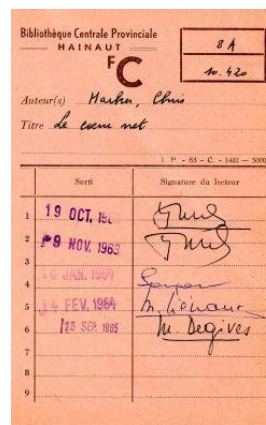 Bibliothèque Centrale Provinciale
HAINAUT
FC
8 A
10.420
Auteur(s) Marker, Chris
Titre Le coeur net
1 P - 63 - C. - 1442 — 5000
Sorti Signature du lecteur
1 19 OCT.
2 9 NOV. 1963
3 JAN. 1964
4
5 FEV. 1964
6 25 SEP. 1965 M. Degives
7
8
9